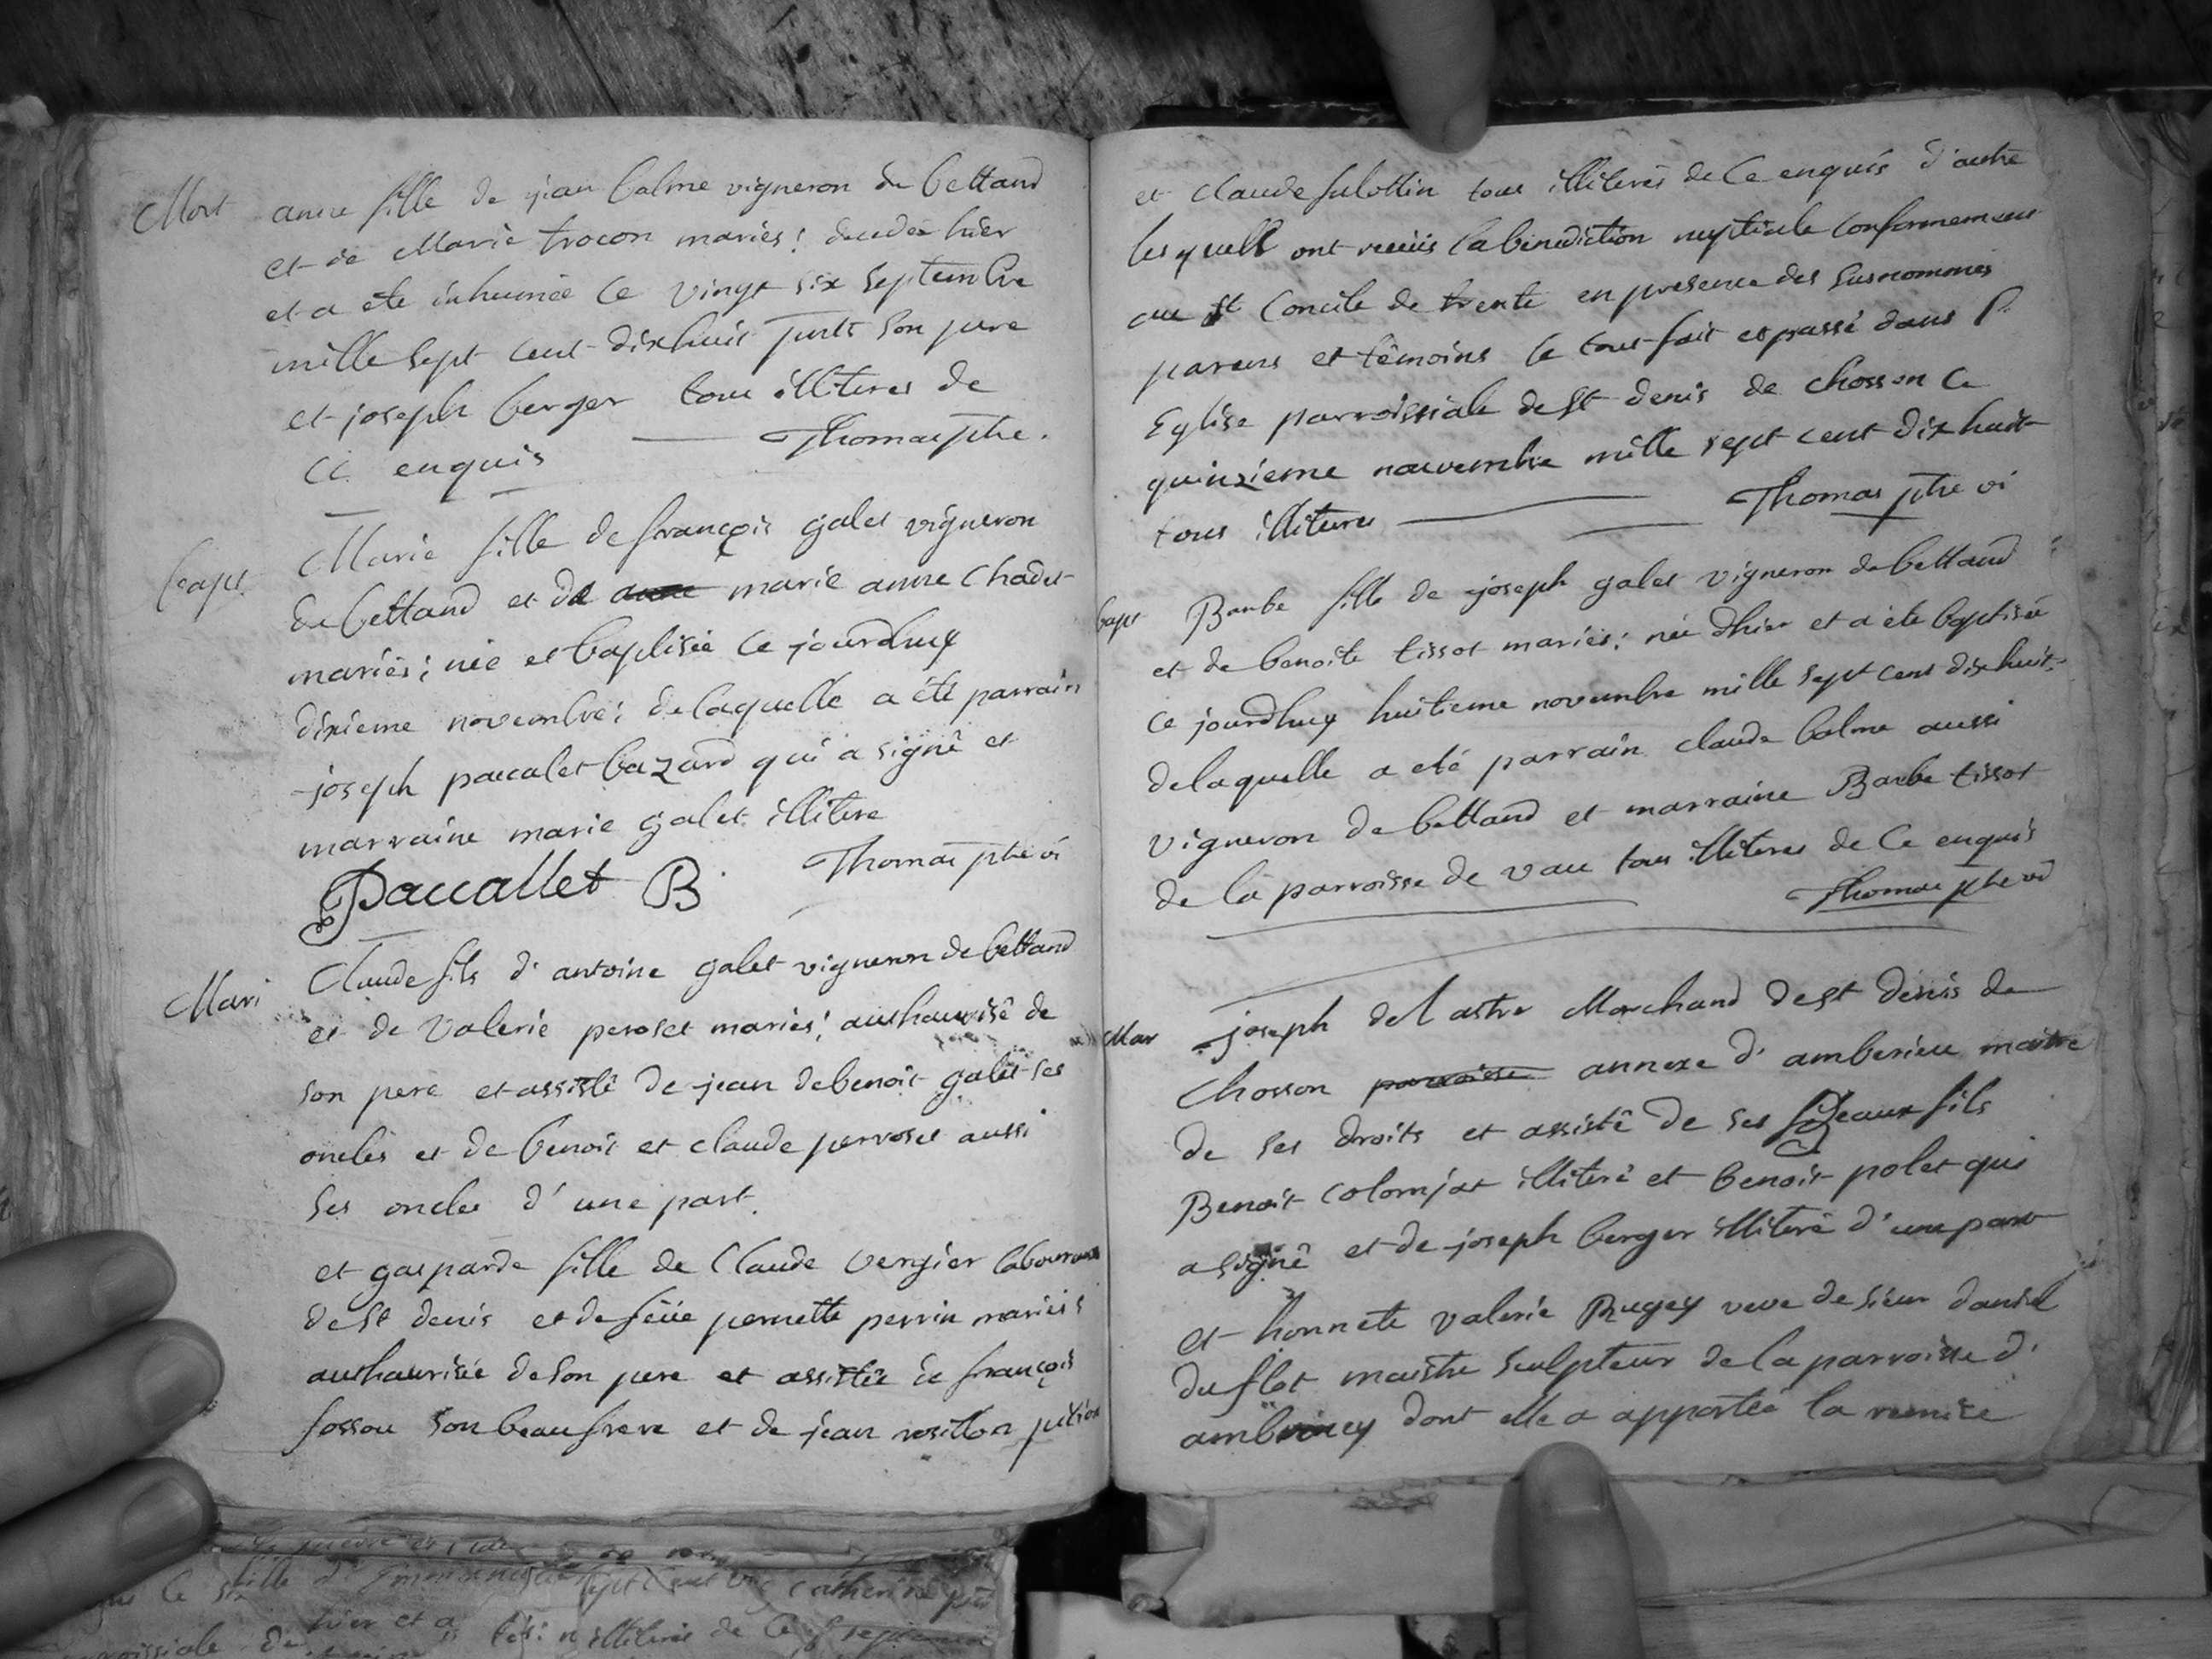 Mort
anne fille de jean balme vigneron de bettand
et de Marie trocon mariés; decedée hier
et a eté inhumée ce vingt six septembre
mille sept cent dixhuit pnts son pere
et joseph berger tous illiteres de
ce enquis Thomas ptre.
bapt
Marie fille de françois galet vigneron
de bettand et de anne marie anne Chadet
mariés; née et baptisée ce jourdhuy
dixieme novembre; de laquelle a été parrain
joseph paccalet bazard qui a signé et
marraine marie galet illitere
Paccallet B Thomas ptre vi
Mari
Claude fils d'antoine galet vigneron de bettand
et de Valerie peroset mariés; authaurisé de
son pere et assisté de jean de benoit galet ses
oncles et de benoit et claude perroset aussi
ses oncles d'une part.
et gasparde fille de Claude vergier laboureur
de st denis et de féüe pernette perrin mariés
authaurisée de son pere et assistée de françois
fossou son beaufrere et de jean rosillon
et Claude tous illiterés de ce enquis d'autre
lesquells ont receüs la benediction nuptiale conformement
au st Concile de trente en presence des susnommés
parens et témoins le tout fait et passé dans l'
Eglise parroissiale de st denis de chosson ce
quinzieme nouvembre mille sept cent dix huit
tous illiteres Thomas ptre vi
bapt
Barbe fille de joseph galet vigneron de bettand
et de benoite tissot mariés; née dhier et a été baptisée
ce jourdhuy huitieme novembre mille sept cent dix huit.
de laquelle a eté parrain claude balme aussi
vigneron de bettand et marraine Barbe tissot
de la parroisse de vau tous illiteres de ce enquis
Thomas ptre vi
Mar
joseph delastre Marchand de st denis de
Chosson parroisse annexe d'amberieu maitre
de ses droits et assisté de ses beaux fils
Benoit Colomjat illiteré et benoit polet qui
a signé et de joseph berger illiteré d'une part
et honnete valerie Rugey veve de sieur daniel
duflot maistre sculpteur de la parroisse d'
ambroney dont elle a apportée la remise